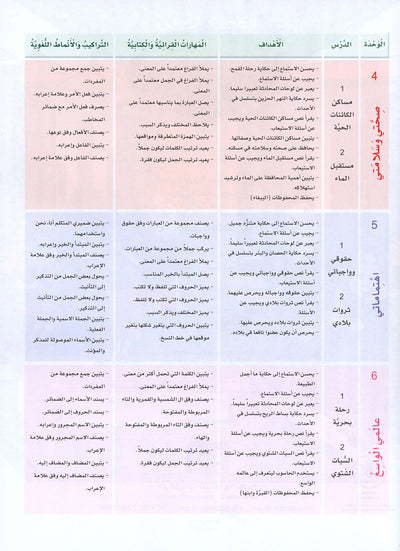 الوَحْدَة
الدَّرْس
الأَهْداف
المَهارات القرائيّة والكتابيّة
التَّراكيب والأنْماط اللُّغَويّة
4
صِحَّتي وَسَلامَتي
1
مساكن
الكائنات
الحيّة
2
مستقبل
الماء
– يحسن الاستماع إلى حكاية رحلة القمح.
– يجيب عن أسئلة الاستماع.
– يعبر عن لوحات المحادثة تعبيراً سليماً.
– يسرد حكاية النهر الحزين بتسلسل في
الأحداث.
– يقرأ نص مساكن الكائنات الحية ويجيب
عن أسئلة الاستيعاب.
– يتبين مساكن الكائنات الحية وصفاتها.
– يحافظ على صحته وسلامته في مسكنه.
– يقرأ نص مستقبل الماء ويجيب عن أسئلة
الاستيعاب.
– يتبين أهمية المحافظة على الماء وترشيد
استهلاكه.
– يحفظ المحفوظات (الببغاء)
– يملأ الفراغ معتمداً على المعنى.
– يملأ الفراغ في الجمل معتمداً على
المعنى.
– يصل العبارة بما يناسبها معتمداً على
المعنى.
– يلاحظ المختلف ويذكر السبب.
– يتبين الهمزة المتطرفة ومواقعها.
– يعيد ترتيب الكلمات ليكون جملاً.
– يعيد ترتيب الجمل ليكون فقرة.
– يتبين جمع مجموعة من
المفردات.
– يتبين فعل الأمر وعلامة إعرابه.
– يصرف فعل الأمر مع ضمائر
المخاطب.
– يصنف الأفعال وفق نوعها.
– يتبين الفاعل وإعرابه.
– يصنف الفاعل وفق علامة إعرابه.
5
اهتماماتي
1
حقوقي
وواجباتي
2
ثروات
بلادي
– يحسن الاستماع إلى حكاية متنزّه جميل.
– يجيب عن أسئلة الاستماع.
– يعبر عن لوحات المحادثة تعبيراً سليماً.
– يسرد حكاية الحصان والبئر بتسلسل في
الأحداث.
– يقرأ نص حقوقي وواجباتي ويجيب عن
أسئلة الاستيعاب.
– يتبين حقوقه وواجباته ويحرص عليهما.
– يقرأ نص ثروات بلادي ويجيب عن
الأسئلة.
– يتبين ثروات بلاده ويحرص عليها.
– يحرص أن يكون عضوا نافعا في بلاده.
– يصنف مجموعة من العبارات وفق حقوق
وواجبات.
– يركب جملاً من مجموعة من العبارات.
– يملأ الفراغ معتمداً على المعنى.
– يصل المبتدأ بالخبر المناسب.
– يميز الحروف التي تلفظ ولا تكتب.
– يميز الحروف التي تكتب ولا تلفظ.
– يميز المختلف ويذكر السبب.
– يتبين الحروف التي يتغير شكلها بتغير
موقعها في خط النسخ.
– يتبين ضميري المتكلم أنا، نحن
واستخدامهما.
– يتبين المبتدأ والخبر وإعرابهما.
– يصنف المبتدأ والخبر وفق علامة
الإعراب.
– يحول بعض الجمل من التذكير
إلى التأنيث.
– يحول بعض الجمل من التأنيث
إلى التذكير.
– يتبين الجملة الاسمية والجملة
الفعلية.
– يتبين الأسماء الموصولة للمذكر
والمؤنث.
6
عالَمي الْواسِع
1
رحلة
بحريّة
2
السُّبات
الشتوي
– يحسن الاستماع إلى حكاية ما أجمل
الطبيعة.
– يجيب عن أسئلة الاستماع.
– يعبر عن لوحات المحادثة تعبيراً سليماً.
– يسرد حكاية بساط الريح بتسلسل في
الأحداث.
– يقرأ نص رحلة بحرية ويجيب عن أسئلة
الاستيعاب.
– يقرأ نص السبات الشتوي ويجيب عن
أسئلة الاستيعاب.
– يستخدم الحاسوب ليتعرف إلى عالمه
الواسع.
– يحفظ المحفوظات (القبّرة وابنها)
– يتبين الكلمة التي تحمل أكثر من معنى.
– يملأ الفراغ معتمداً على المعنى.
– يصنف وفق ال الشمسية والقمرية والتاء
المربوطة والمفتوحة.
– يصنف وفق التاء المربوطة والمفتوحة
والهاء.
– يعيد ترتيب الكلمات ليكون جملاً.
– يعيد ترتيب الجمل ليكون فقرة.
– يتبين جمع مجموعة من
المفردات.
– يسند الأسماء إلى الضمائر.
– يسند الحروف إلى الضمائر.
– يتبين الاسم المجرور وإعرابه.
– يصنف الاسم المجرور وفق علامة
الإعراب.
– يتبين المضاف والمضاف إليه.
– يصنف المضاف إليه وفق علامة
الإعراب.